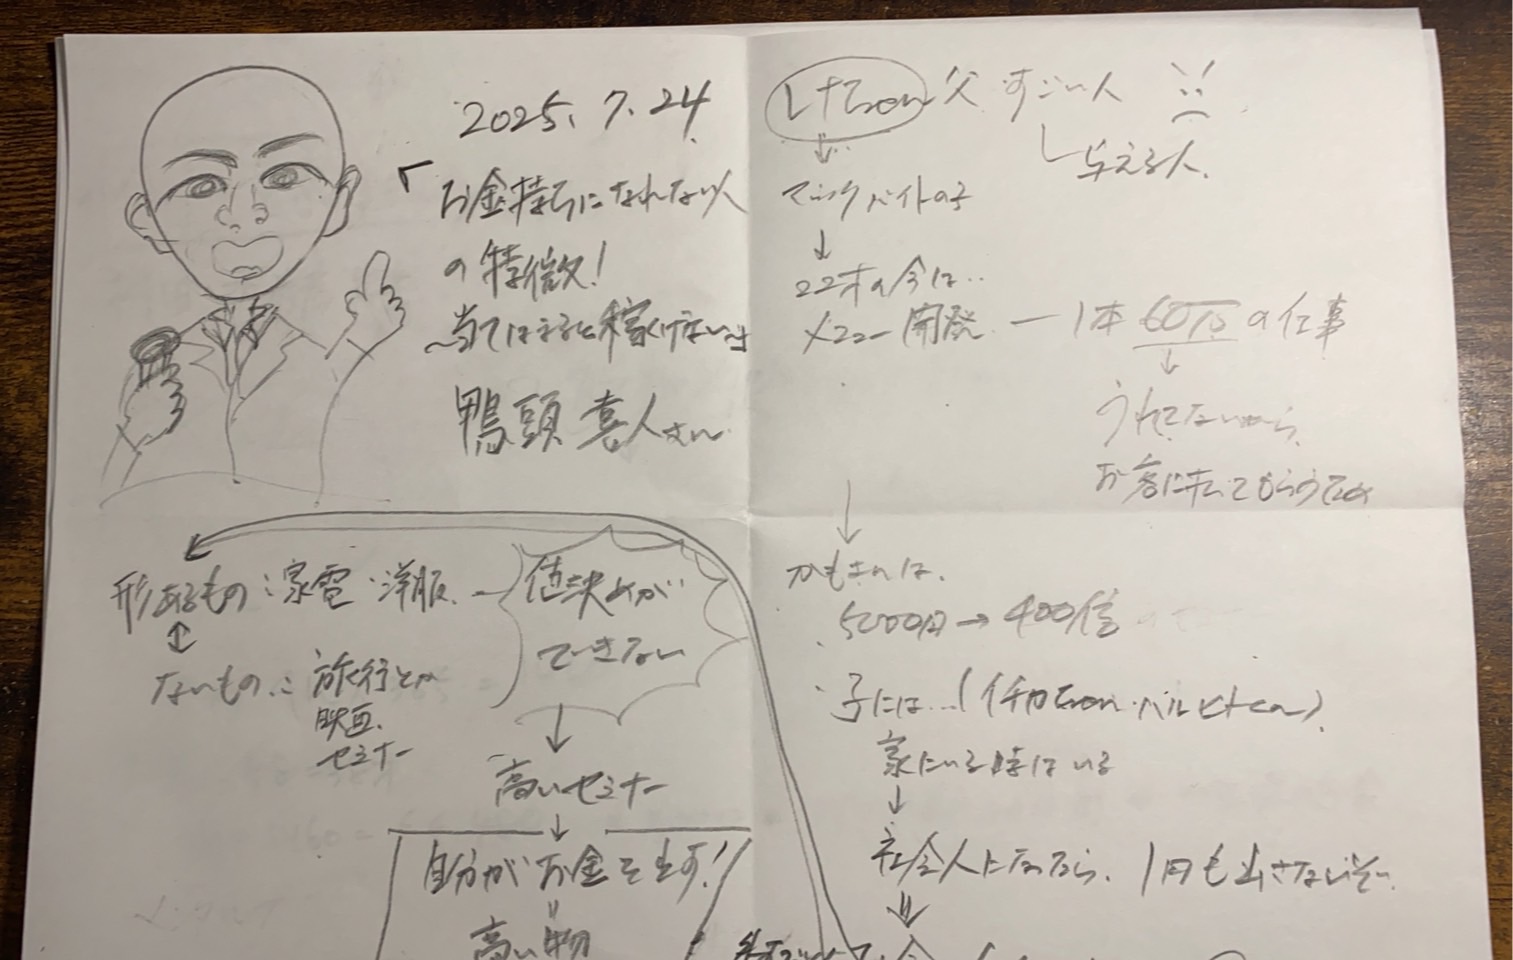 2025.7.24
「お金持ちになれない人
の特徴!
〜当てはまると稼げない〜」
鴨頭嘉人さん
形あるもの:家電・洋服
値決めが
できない
ないもの: 旅行とか
映画
セミナー
高いセミナー
自分がお金を出す!
高い物
父 すごい人
与える人
マックバイトの子
22才の今は…
メニュー開発 ー 1本 60万 の仕事
うれてないから
お客に来てもらうため
かもさんは、
5000円→400億
子には…(
家にいる時はいる
社会人になったら、1円も出さないぞ